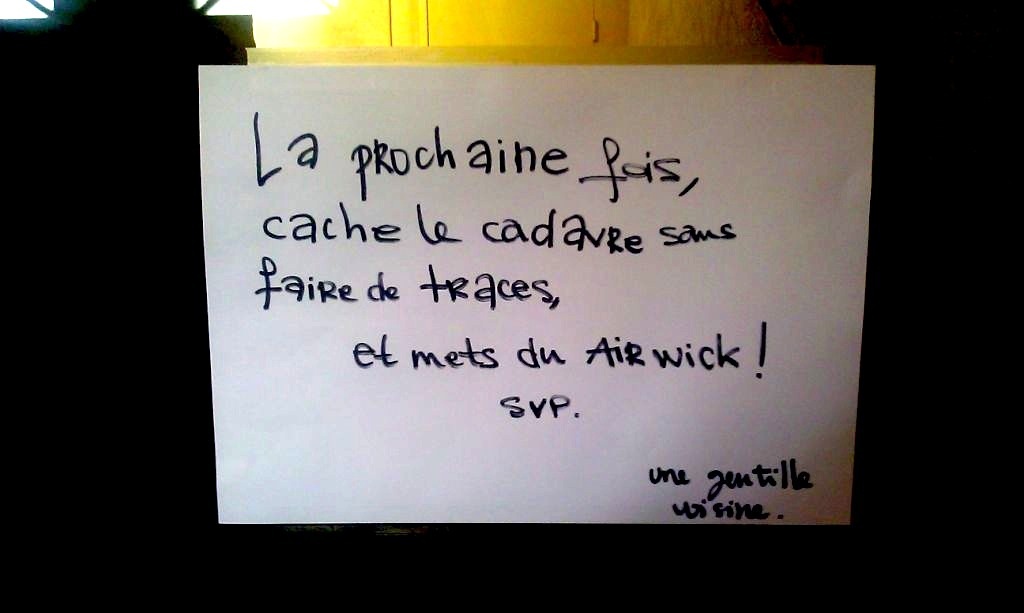 La prochaine fois,
cache le cadavre sans
faire de traces,
et mets du Air wick !
SVP.
une gentille
voisine.